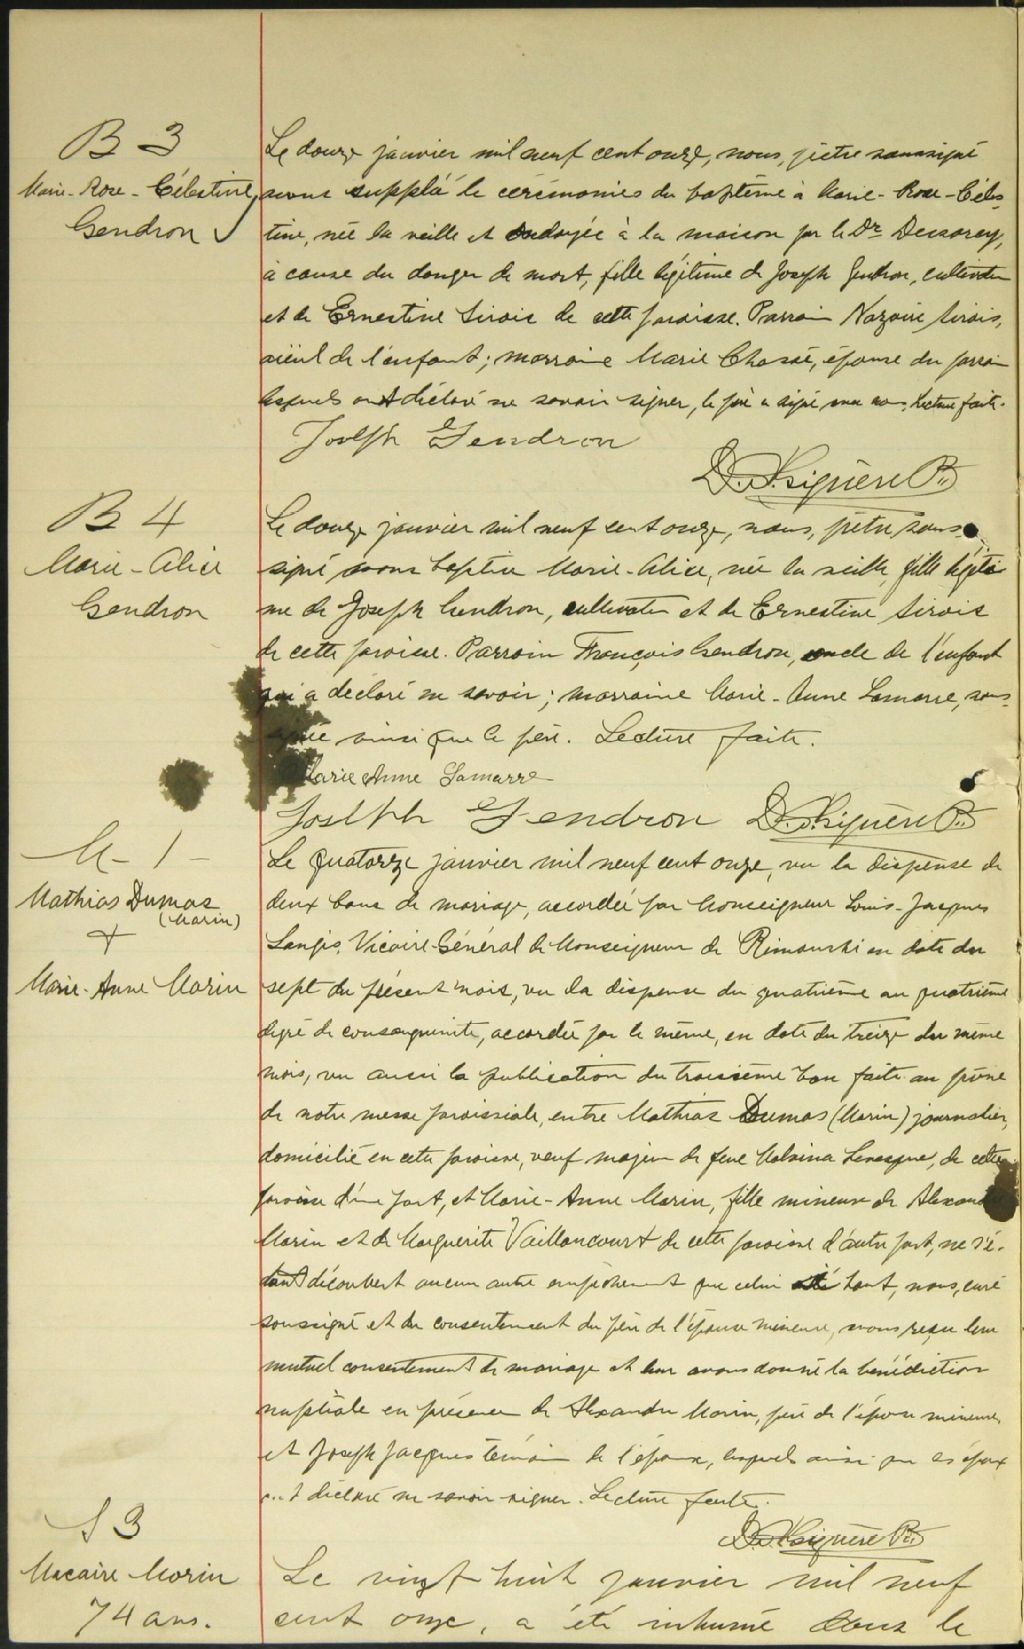 B 3
Marie-Rose-Célestine
Gendron
Le douze janvier mil neuf cent onze, nous, prêtre soussigné
avons suppléé le cérémonies du baptême à Marie-Rose-Céles-
tine, née la veille et ondoyée à la maison par le Dr
à cause du danger de mort, fille légitime de Joseph Gendron, cultivateur
et de Ernestine Sirois de cette paroisse. Parrain Nazaire Sirois,
aïeul de l'enfant; marraine Marie Chassé, épouse du parrain
lesquels ont déclaré ne savoir signer, le père a signé avec nous. Lecture faite.
Joseph Gendron
B 4
Marie-Alice
Gendron
Le douze janvier mil neuf cent onze, nous, prêtre, sous-
signé avons baptisé Marie-Alice, née la veille, fille légiti-
me de Joseph Gendron, cultivateur et de Ernestine Sirois
de cette paroisse. Parrain François Gendron, oncle de l'enfant
qui a déclaré ne savoir; marraine Marie-Anne Lamarre, sous-
signée ainsi que le père. Lecture faite.
Marie Anne Lamarre
Joseph Gendron
M-1-
Mathias Dumas
(Marin)
+
Marie-Anne Morin
Le quatorze janvier mil neuf cent onze, vu la dispense de
deux bans de mariage, accordée par Monseigneur Louis-Jacques
Langis, Vicaire-Général de Monseigneur de Rimouski en date du
sept du présent mois, vu la dispense du quatrième au quatrième
degré de consanguinité, accordée par le même, en date du treize du même
mois, vu aussi la publication du troisième ban faite au prône
de notre messe paroissiale, entre Mathias Dumas (Marin) journalier,
domicilié en cette paroisse, veuf majeur de feue Malvina Levesque, de cette
paroisse d'une part, et Marie-Anne Morin, fille mineure de Alexandre
Morin et de Marguerite Vaillancourt de cette paroisse d'autre part, ne s'é-
tant découvert aucun autre empêchement que celui haut, nous, curé
soussigné et du consentement du père de l'épouse mineure, avons reçu leur
mutuel consentement de mariage et leur avons donné la bénédiction
nuptiale en présence de Alexandre Morin, père de l'épouse mineure,
et Joseph Jacques témoin de l'époux, lesquels ainsi que les époux
ont déclaré ne savoir signer. Lecture faite.
S 3
Macaire Morin
74 ans.
Le vingt huit janvier mil neuf
cent onze, a été inhumé dans le